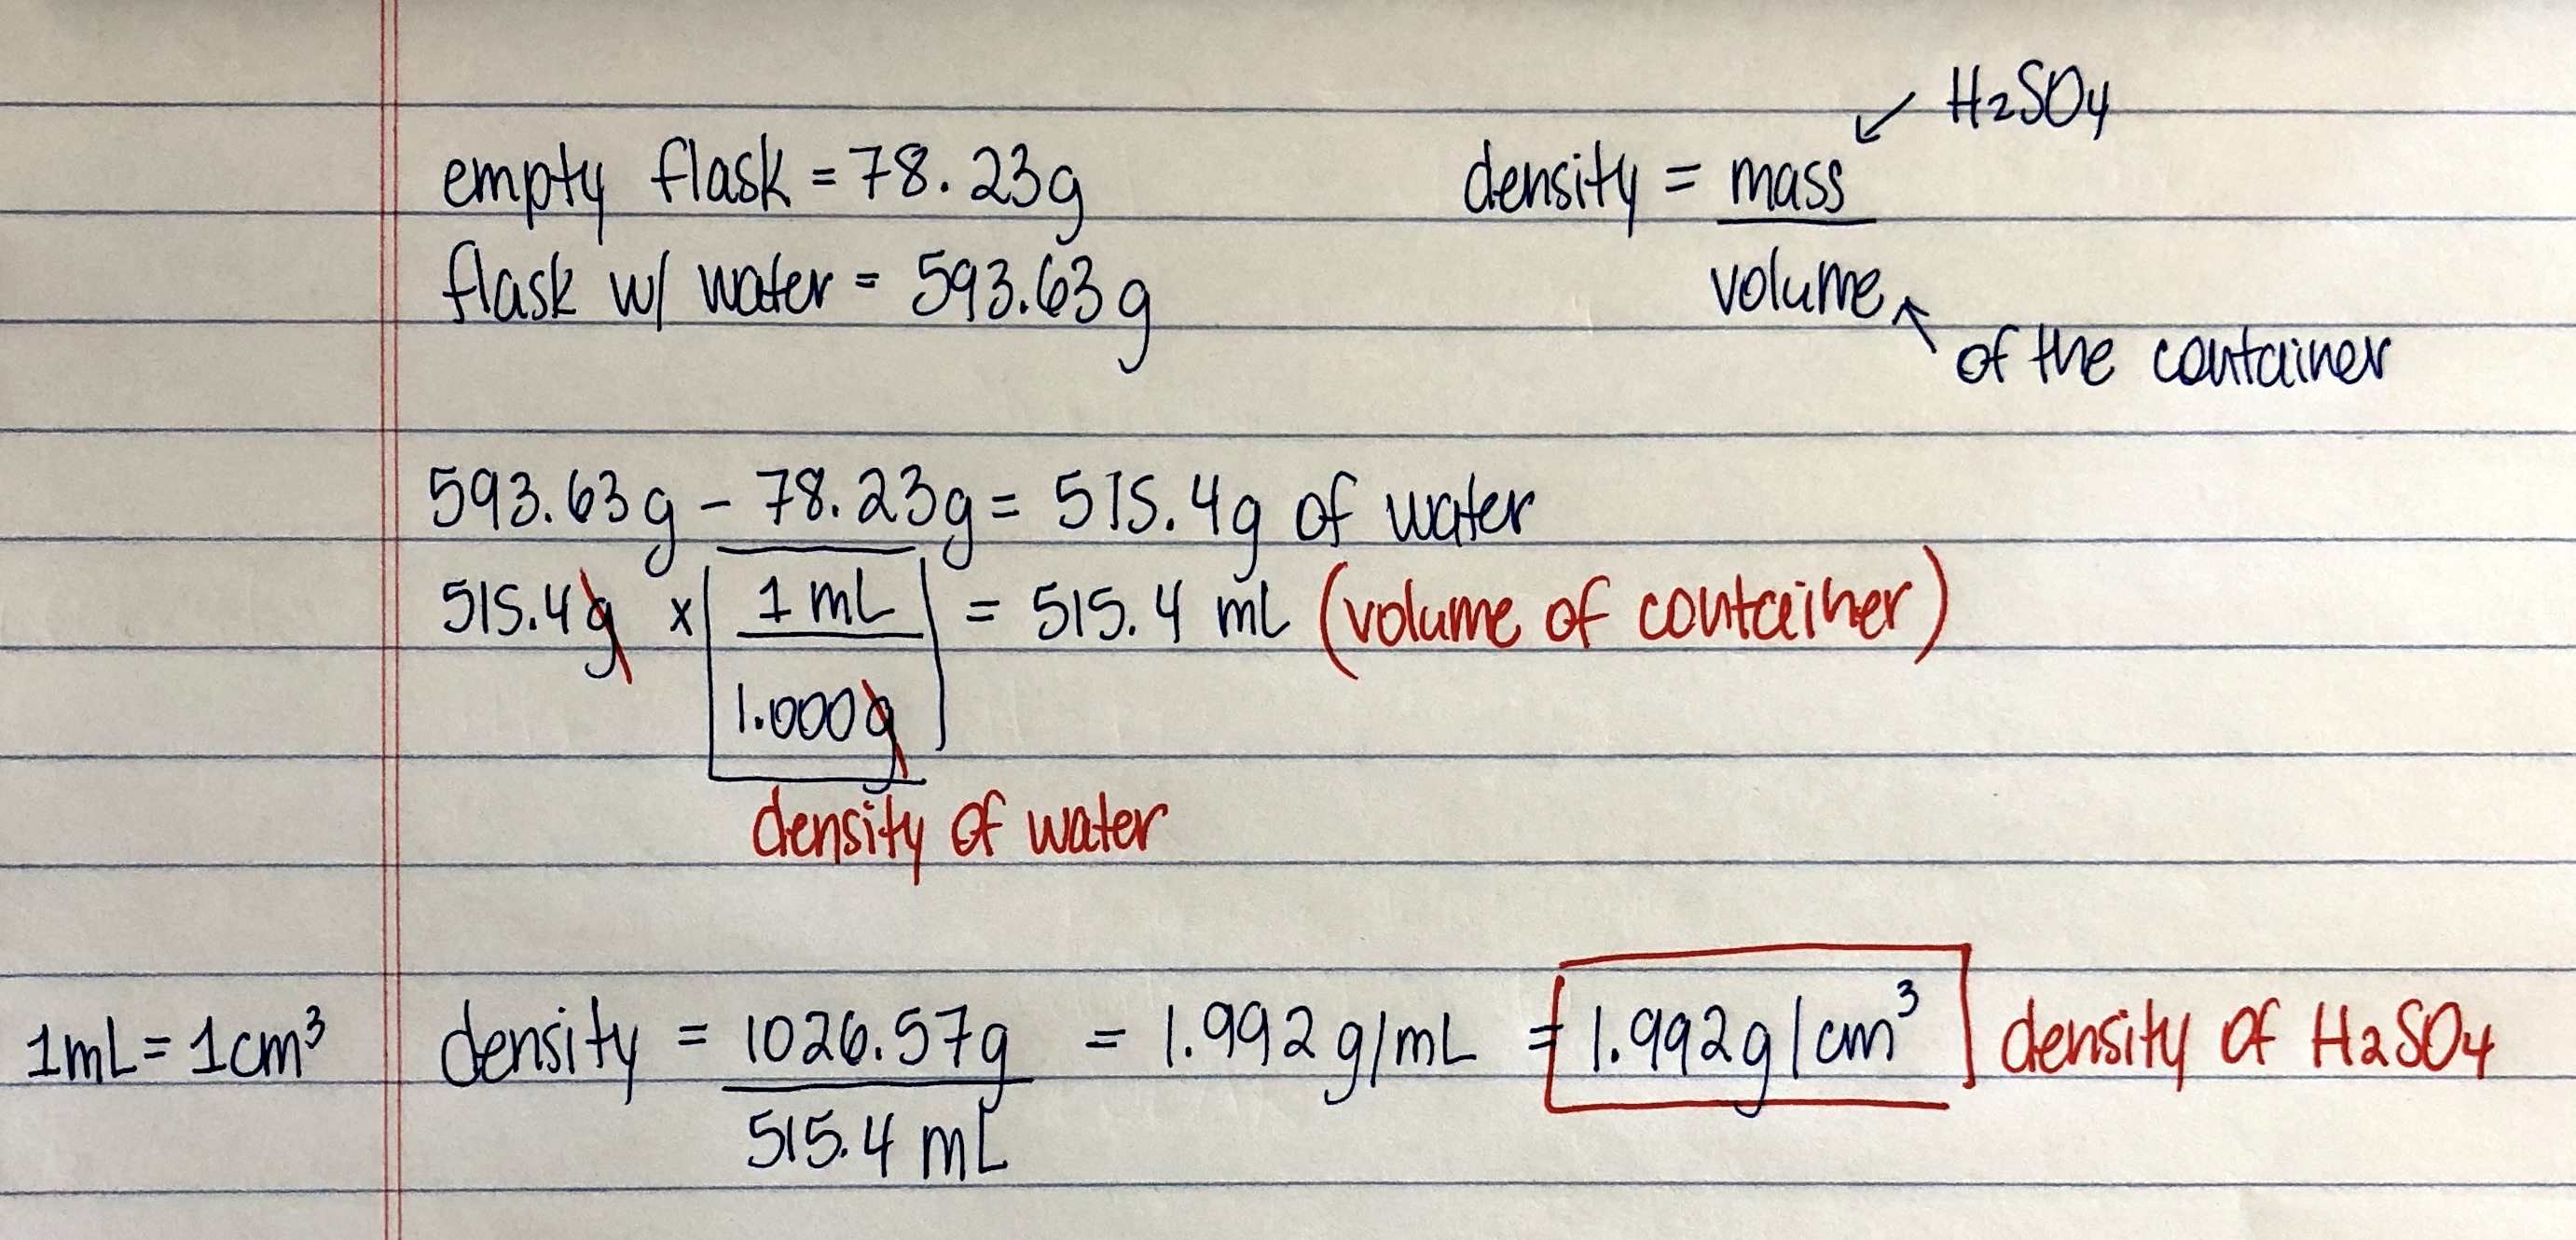 empty flask = 78.23g
flask w/ water = 593.63g
density = mass / volume
H₂SO₄
of the container
593.63g - 78.23g = 515.4g of water
515.4g x | 1 mL / 1.000g | = 515.4 mL (volume of container)
density of water
1mL = 1cm³
density = 1026.57g / 515.4 mL = 1.992 g/mL = 1.992g/cm³ density of H₂SO₄